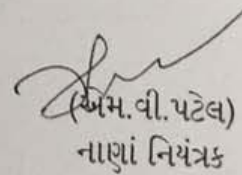 (એમ.વી.પટેલ)
નાણાં નિયંત્રક